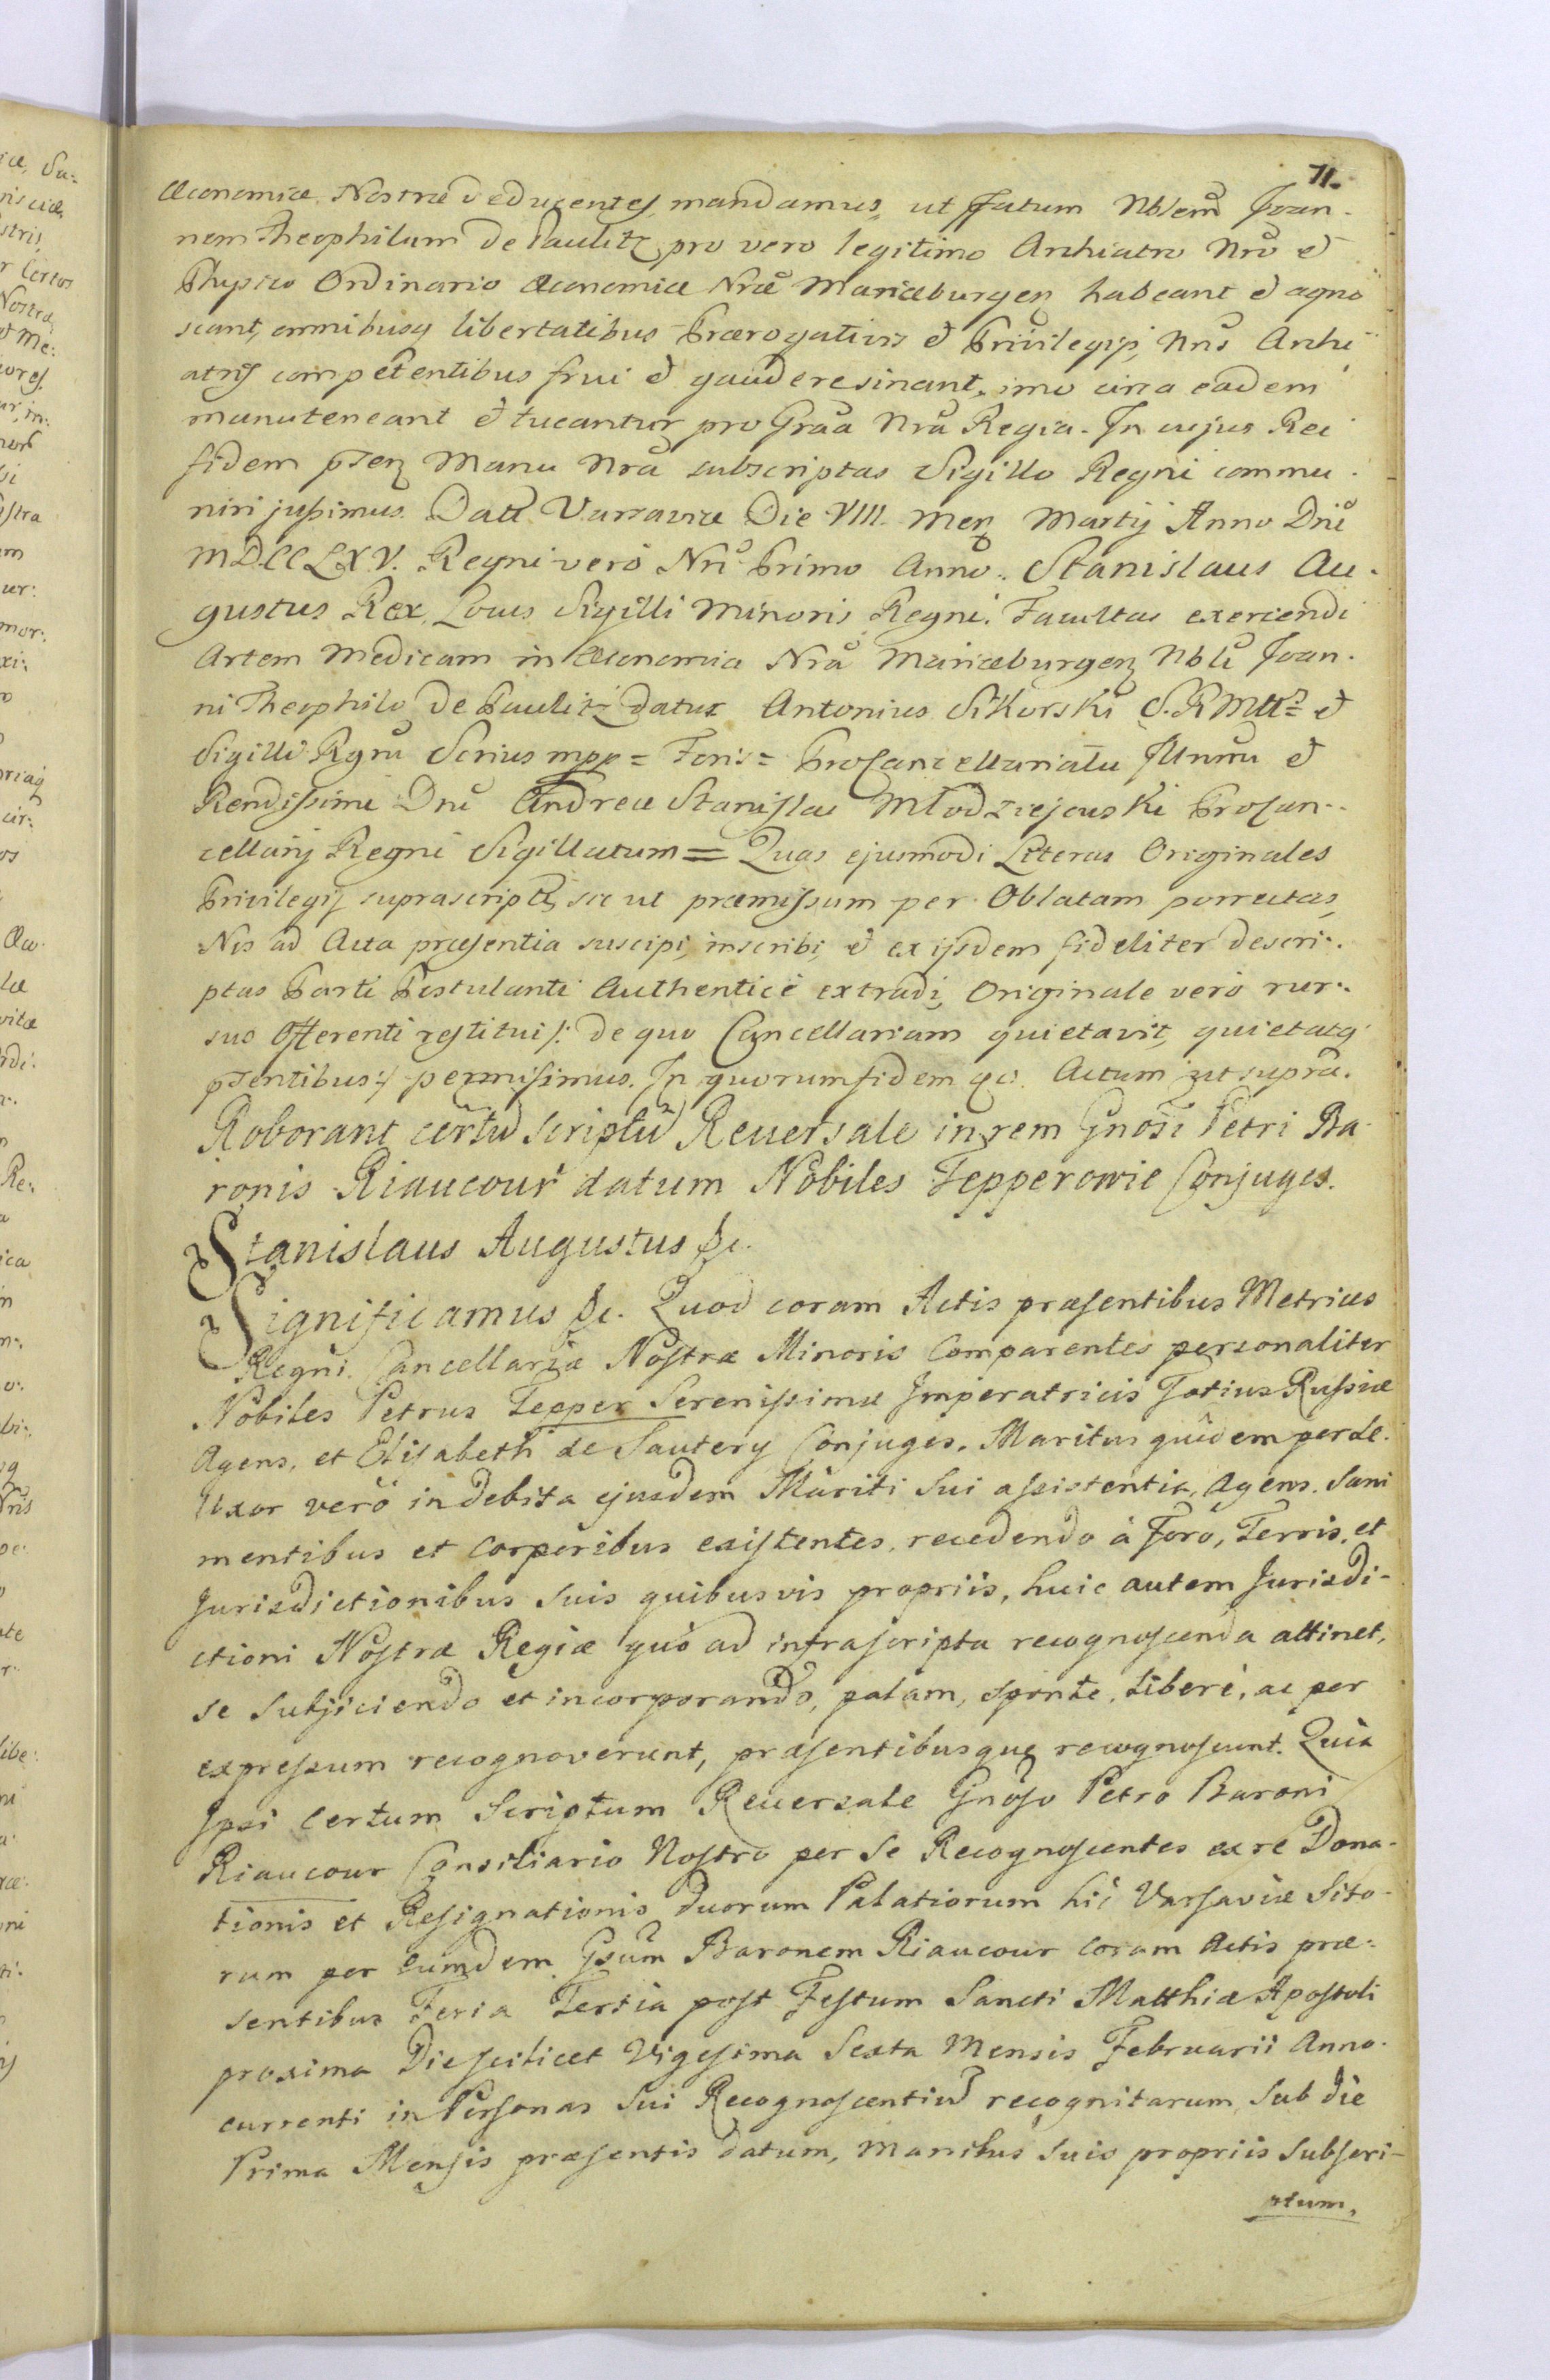 71.
Œconomiæ Nostræ deducentes, mandamus, ut pfatum Nblem Joan-
nem Theophilum de Paulitz pro vero legitimo Archiatro Nro et
Physico Ordinario Œconomiæ Nræ Mariæburgen habeant et agno
scant, omnibusq libertatibus Prærogativis et Privilegijs, Nris Archi
atris competentibus frui et gaudere sinant, imo circa eadem
manuteneant et tueantur pro Graa Nra Regia. In cujus Rei
fidem pnten Manu Nra subscriptas Sigillo Regni commu-
niri jussimus. Datt Varsaviæ Die VIII. Men Martij Anno Dni
MDCCLXV. Regni verò Nri Primo Anno. Stanislaus Au-
gustus Rex, Locus Sigilli Minoris Regni. Facultas exercendi
Artem Medicam in Œconomia Nra Mariæburgen Nbli Joan-
ni Theophilo de Paulitz datur Antonius Sikorski S. R Mtt et
Sigilli Rgni Scrius mpp = Foris = Procancellariatu Illmi et
Rendissimi Dni Andreæ Stanislai Młodziejowski Procan-
cellarij Regni Sigillatum = Quas ejusmodi Literas Originales
Privilegij suprascripti, sic ut præmissum per Oblatam porrectas,
Nos ad Acta præsentia suscipi, inscribi, et ex ijsdem fideliter descri-
ptas Parti Postulanti Authenticè extradi, Originale verò rur-
sus Offerenti restitui /: de quo Cancellariam quietavit, quietatq
pntentibus :/ permisimus. In quorum fidem &c. Actum ut suprà.
Roborant certu Scriptu Reuersale in rem Gnosi Petri Ba-
ronis Riaucour datum Nobiles Tepperowie Conjuges.
Stanislaus Augustus &c.
Significamus &c. Quod coram Actis præsentibus Metrices
Regni Cancellariæ Nostræ Minoris Comparentes personaliter
Nobiles Petrus Tepper Serenissimæ Imperatricis Totius Russiæ
Agens, et Elisabeth de Sautery Conjuges, Maritus quidem per se.
Uxor verò in debita ejusdem Mariti Sui assistentia, Agens. Sani
mentibus et corporibus existentes, recedendo à Foro, Terris, et
Jurisdictionibus Suis quibusvis propriis, huic autem Jurisdi-
ctioni Nostræ Regiæ quò ad infrascripta recognoscenda attinet,
se Subjiciendo et incorporando, palam, sponte, liberè, ac per
expressum recognoverunt, præsentibusque recognoscunt. Quia
Ipsi Certum Scriptum Reuersale Gnoso Petro Baroni
Riaucour Consiliario Nostro per Se Recognoscentes ex re Dona-
tionis et Resignationis duorum Palatiorum hic Varsaviæ Sito-
rum per Eumdem Gsum Baronem Riaucour coram Actis præ-
sentibus Feria Tertia post Festum Sancti Matthiæ Apostoli
proxima Die scilicet Vigesima Sexta Mensis Februarii Anno
currenti in Personas Sui Recognoscentiu recognitarum, Sub die
Prima Mensis præsentis datum, Manibus Suis propriis Subscri-
ptum,